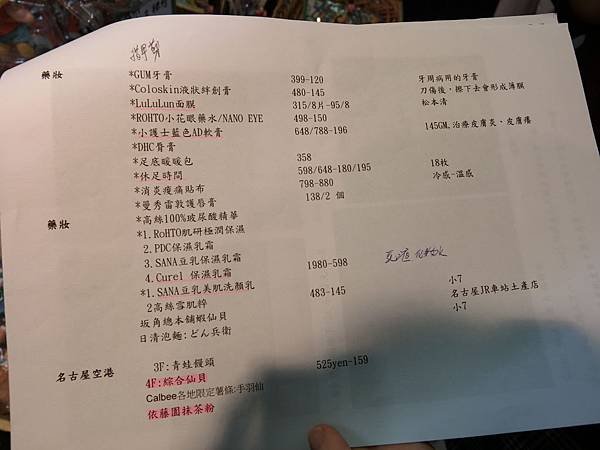 指甲剪
藥妝 *GUM牙膏 399-120 牙周病用的牙膏
*Coloskin液狀絆創膏 480-145 刀傷後，擦下去會形成薄膜
*LuLuLun面膜 315/8片-95/8 松本清
*ROHTO小花眼藥水/NANO EYE 498-150
*小護士藍色AD軟膏 648/788-196 145GM,治療皮膚炎、皮膚癢
*DHC脣膏
*足底暖暖包 358
*休足時間 598/648-180/195 18枚
*消炎痠痛貼布 798-880 冷感-溫感
*曼秀雷敦護唇膏 138/2 個
藥妝 *高絲100%玻尿酸精華
*1.RoHTO肌研極潤保濕
2.PDC保濕乳霜
3.SANA豆乳保濕乳霜
4.Curel 保濕乳霜 1980-598
*1.SANA豆乳美肌洗顏乳
2高絲雪肌粹 483-145 小7
坂角總本鋪蝦仙貝 名古屋JR車站土產店
日清泡麵:どん兵衛 小7
名古屋空港 3F:青蛙饅頭 525yen-159
4F:綜合仙貝
Calbee各地限定薯條:手羽仙
依藤園抹茶粉